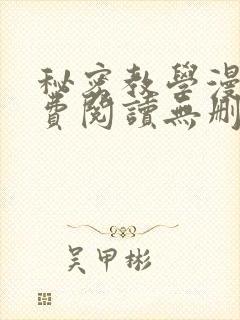 秘密教學漫
費閱讀無刪
吳甲彬